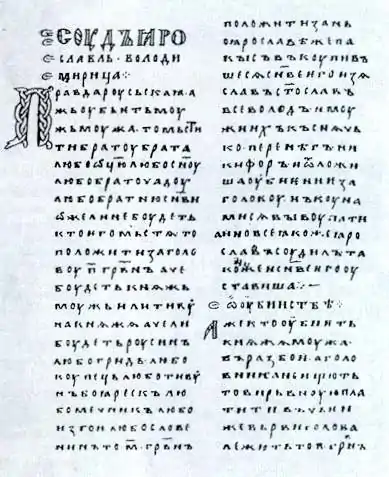 СОУДЪ ꙖРО
СЛАВЛЬ · ВОЛОДИ
МИРИЦА ⁘
ПРАВДА РОУСЬКАꙖ · А
ЖЬ ОУБЬѤТЬ МОУ
ЖЬ МОУЖА · ТО МЬСТИ
ТИ БРАТОУ БРАТА
ЛЮБО ѾЦЮ ЛЮБО СН҃ОУ
ЛЮБО БРАТОУЧАДОУ
ЛЮБО БРАТНЮ СН҃ВИ
ѠЖЕ ЛИ НЕ БОУДЕТЬ
КТО ѤГО МЬСТѦ ТО
ПОЛОЖИТИ ЗА ГОЛО
ВОУ П҃ ГРВ҃НЪ АЧЕ
БОУДЕТЬ КНѦЖЬ
МОУЖЬ ИЛИ ТИВОУ
НА КНѦЖА АЧЕ ЛИ
БОУДЕТЬ РОУСИНЪ
ЛЮБО ГРИДЬ ЛЮБО
КОУПЕЦЬ ЛЮБО ТИВОУ
НЪ БОꙖРЕСКЪ ЛЮ
БО МЕЧНИКЪ ЛЮБО
ИЗГОИ ЛЮБО СЛОВЕ
НИНЪ ТО М҃ ГРВ҃НЪ
ПОЛОЖИТИ ЗА НЬ
ПО ꙖРОСЛАВѢ ЖЕ ПА
КЫ СЪВЪКОУПИВЪ
ШЕСѦ СН҃ВЕ ѤГО ИЗѦ
СЛАВЪ СТ҃ОСЛАВЪ
ВСЕВОЛОДЪ И МОУ
ЖИ ИХЪ КЪСНѦЧЬ
КО ПЕРЕНѢГЪ НИ
КИФОРЪ И ѾЛОЖИ
ША ОУБИѤНИѤ ЗА
ГОЛОВОУ НЪ КОУНА
МИ СѦ ВЫКОУПАТИ
А ИНО ВСЕ ꙖКОЖЕ ꙖРО
СЛАВЪ СОУДИЛЪ ТА
КОЖЕ И СН҃ВЕ ѤГО ОУ
СТАВИША ⁘
Ѡ ОУБИИСТВѢ ⁘
АЖЕ КТО ОУБИѤТЬ
КНѦЖА МОУЖА
ВЪ РАЗБОИ А ГОЛО
ВНИКА НЕ ИЩЮТЬ
ТО ВИРЬВНОУЮ ПЛА
ТИТИ ВЪ ЧЬѤИ
ЖЕ ВЬРВИ ГОЛОВА
ЛЕЖИТЬ ТО П҃ ГРВ҃Н